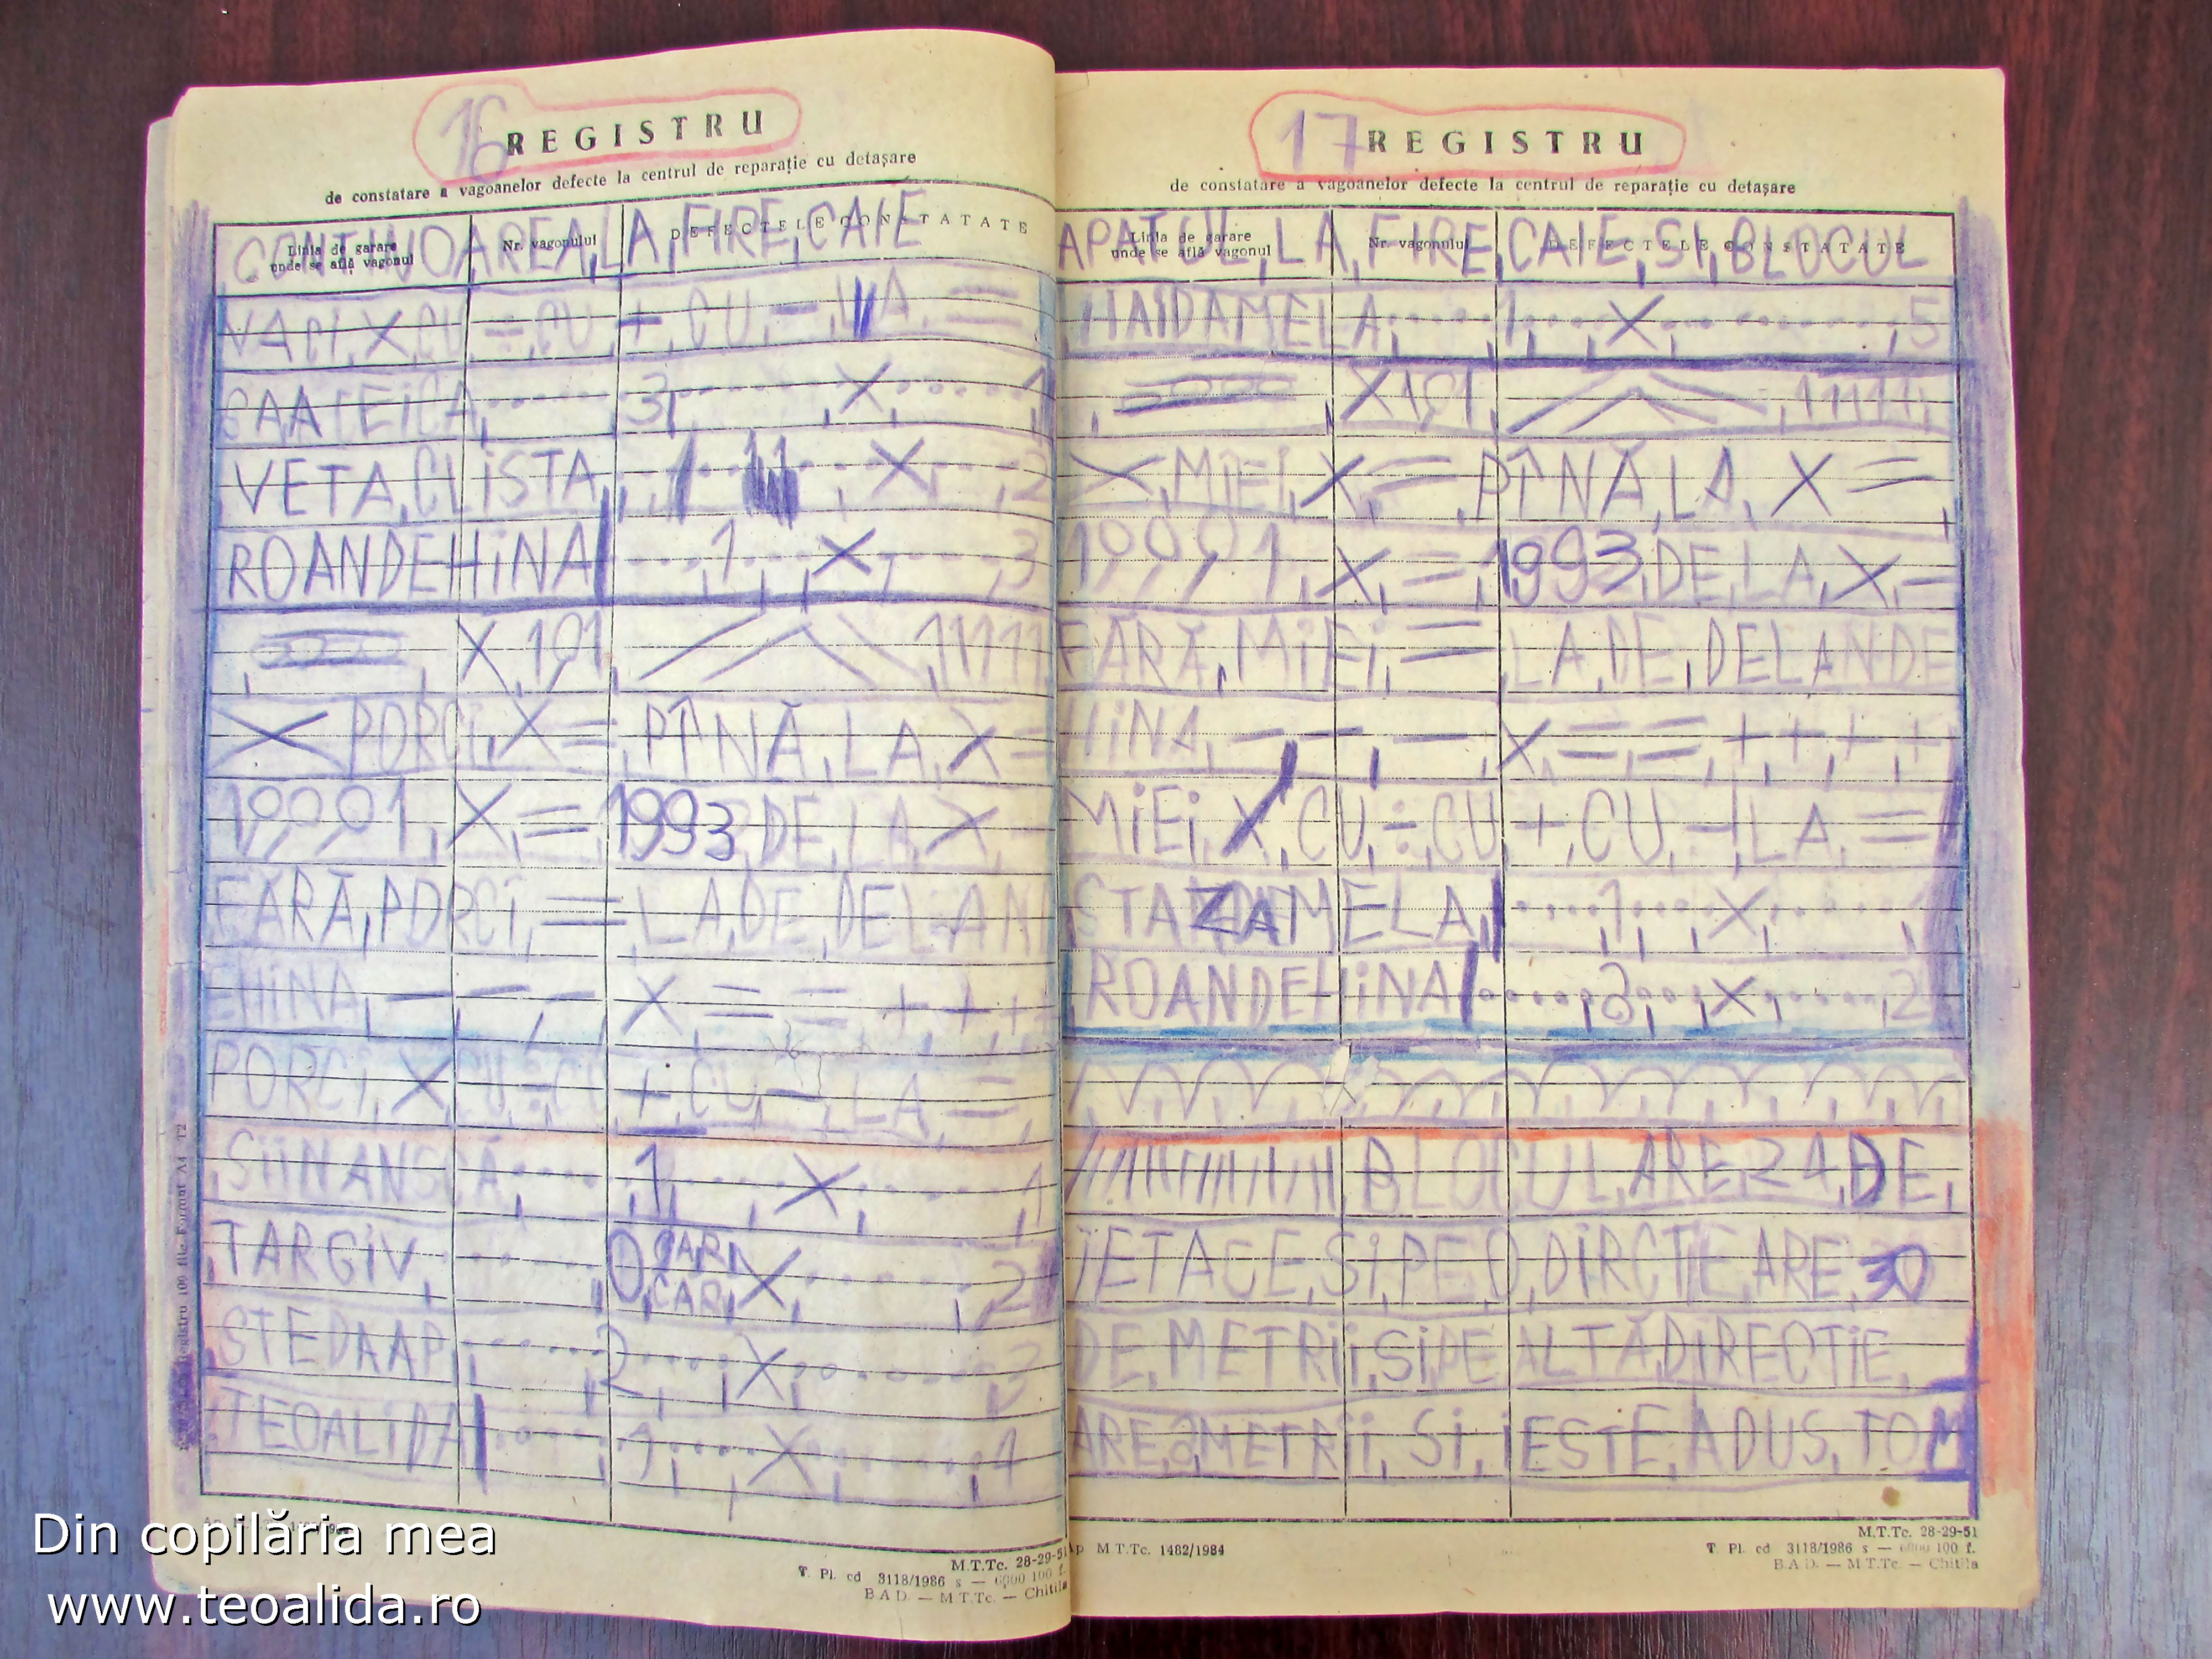 16 REGISTRU
de constatare a vagoanelor defecte la centrul de reparație cu detașare
Linia de garare unde se află vagonul
Nr. vagonului
DEFECTELE CONSTATATE
CONTINUOAREA,LA,FIRE,CAIE
VACI,X,CU,÷,CU,+,CU,−,LA,=
SAAIEICA,.....,3,.....,X,.....,1
VETA,CLISTA,.....,X,.....,2
ROANDEHINA,.....,1,.....,X,.....,3
X,191, 11111
X PORCI,X=,PÎNĂ,LA,X=
19,9,91,X,=,1993,DE,LA,X,−
FĂRĂ,PORCI,=,LA,DE,DELAN
EHINA,−,−,−,X,=,=,+,+,+
PORCI,X,CU,÷,CU,+,CU,−,LA,=,
SIINANSCĂ,.....,1,.....,X,.....,1
TARGIV,.....,0,CARI,CAR,X,.....,2
STEDAAP,.....,2,.....,X,.....,3
TEOALIDA,.....,1,.....,X,.....,4
Registru 100 file Format A4 T2
M.T.Tc. 28-29-51
T. Pl. cd 3118/1986 s — 6000 100 f.
B.A.D. — M.T.Tc. — Chitila
17 REGISTRU
de constatare a vagoanelor defecte la centrul de reparație cu detașare
Linia de garare unde se află vagonul
Nr. vagonului
DEFECTELE CONSTATATE
APATUL,LA,FIRE,CAIE,SI,BLOCUL
HAIDAMELA,.....,1,.....,X,.....,5
X191, 11111,
X,MIEI,X,=,PÎNĂ,LA,X=,
19,9,91,X,=,1993,DE,LA,X,−
FĂRĂ,MIEI,=,LA,DE,DELANDE
HINA,−,−,−,X,=,=,+,+,+,+
MIEI,X,CU,÷,CU,+,CU,−,LA,=
ROANDEHINA,.....,3,.....,X,.....,2
BLOCUL,ARE,24,DE,
IETAGE,SI,PE,O,DIRCTIE,ARE,30
DE,METRII,SI,PE ALTĂ,DIRECTIE,
METRII, SI,IESTE,ADUS,TOM
Ap M.T.Tc. 1482/1984
M.T.Tc. 28-29-51
T. Pl. cd 3118/1986 s — 6000 100 f.
B.A.D. — M.T.Tc. — Chitila
Din copilăria mea
www.teoalida.ro